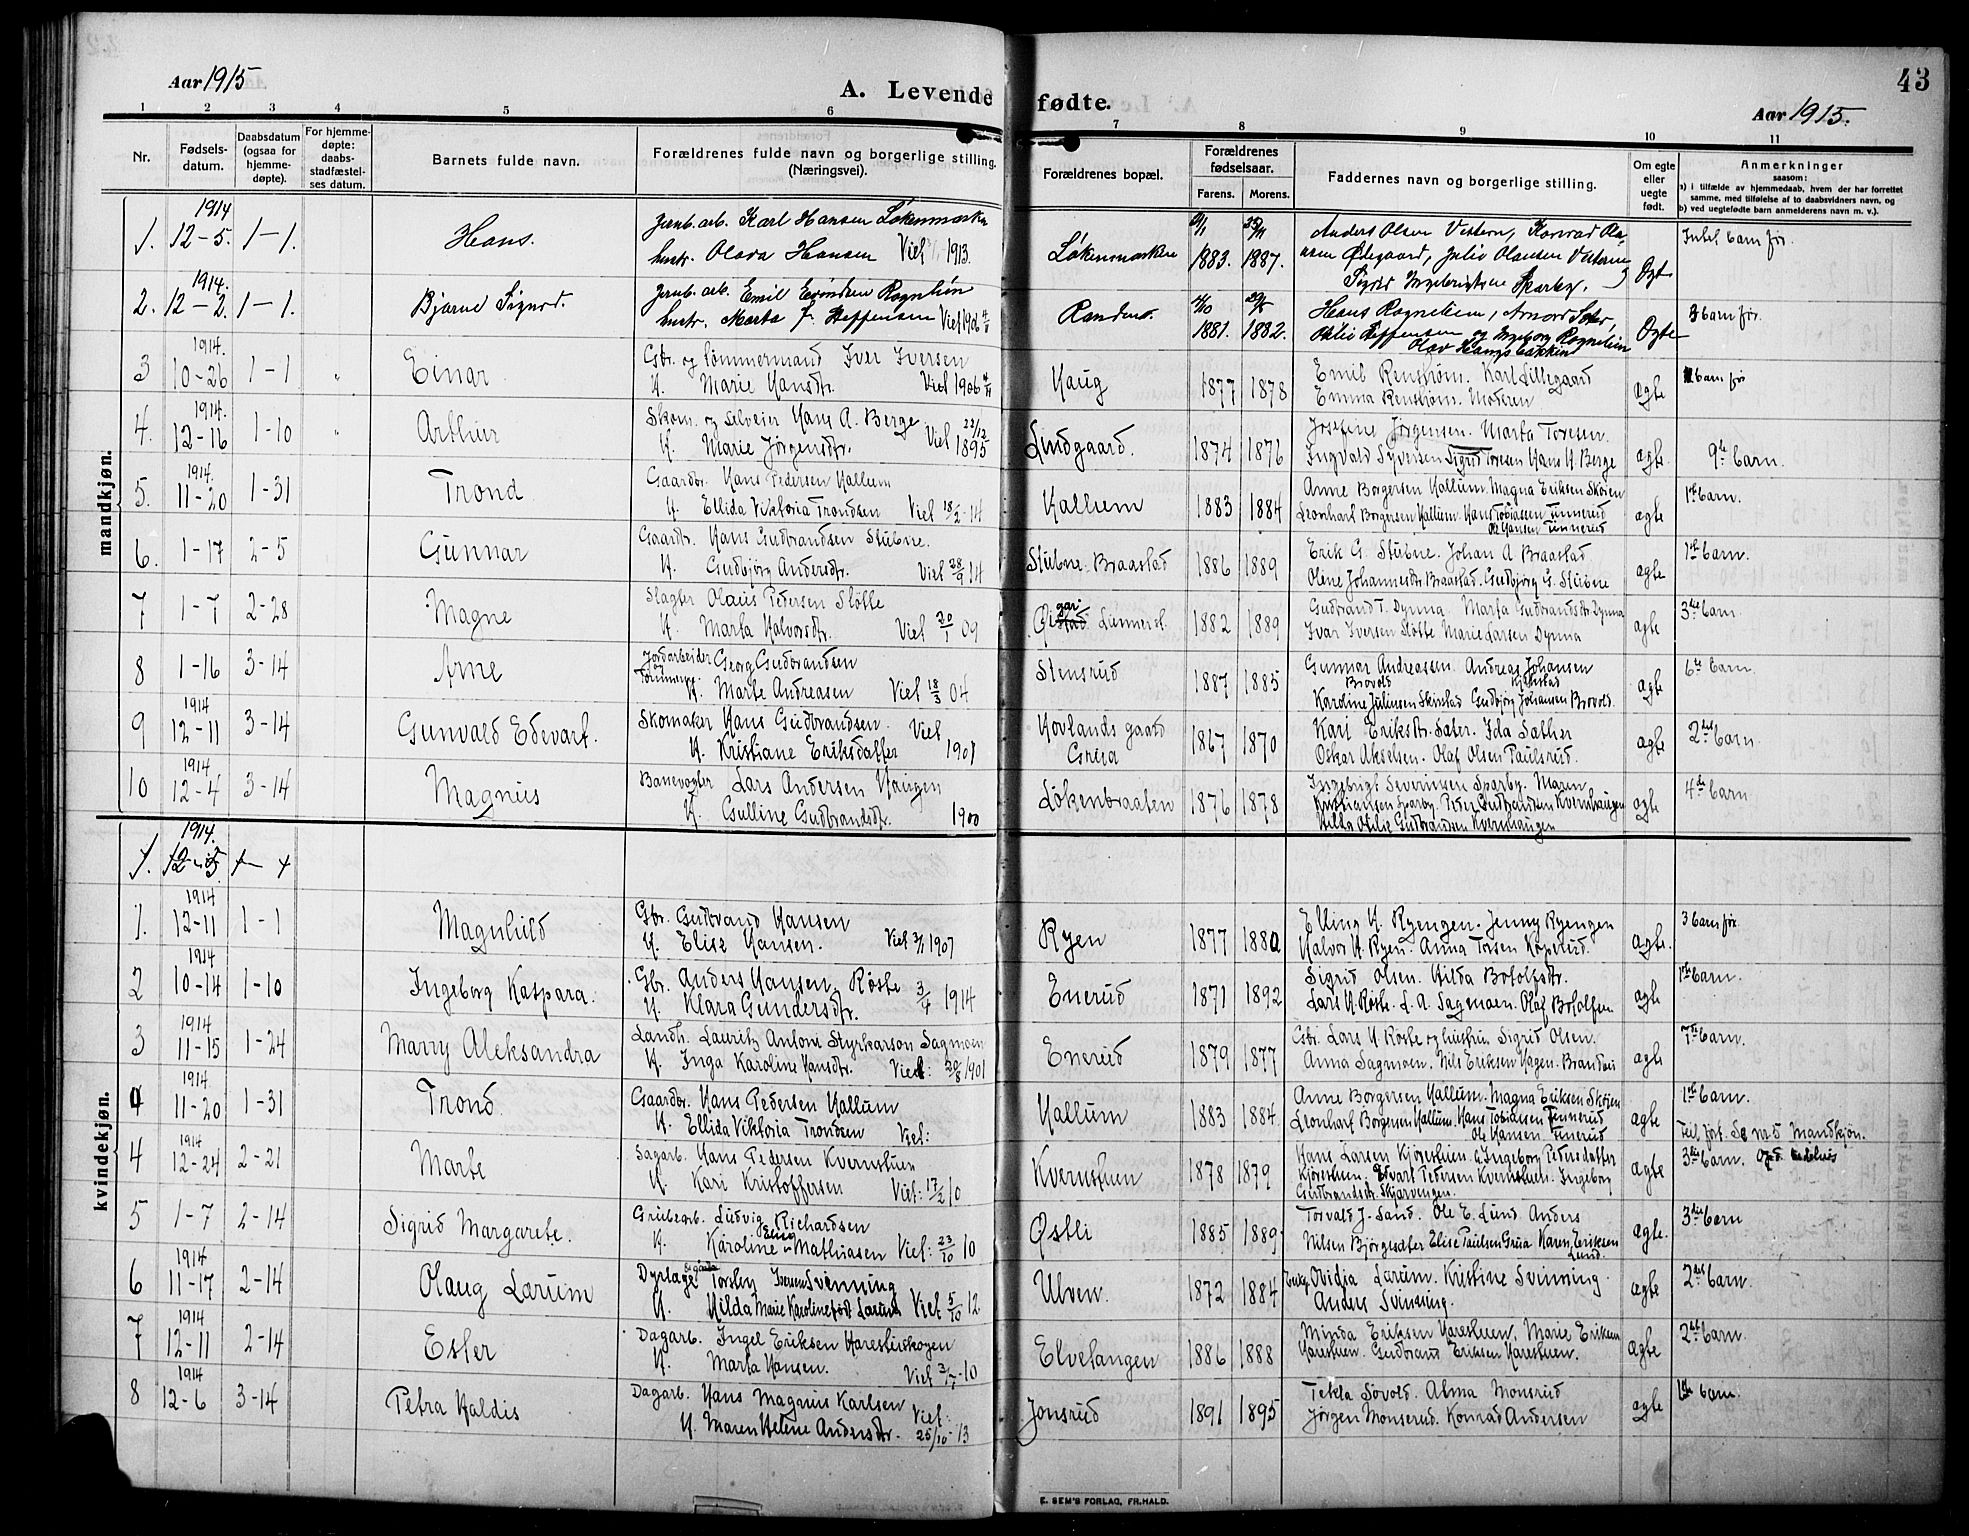 43
Aar 1915
A. Levende fødte.
Aar 1915.
1 2 3 4 5 6 7 8 9 10 11
Nr.
Fødsels-
datum.
Daabsdatum
(ogsaa for
hjemme-
døpte).
For hjemme-
døpte:
daabs-
stadfæstel-
ses datum.
Barnets fulde navn.
Forældrenes fulde navn og borgerlige stilling.
(Næringsvei).
Forældrenes bopæl.
Forældrenes
fødselsaar.
Farens. Morens.
Faddernes navn og borgerlige stilling.
Om egte
eller
uegte
født.
Anmerkninger
saasom:
a) i tilfælde av hjemmedaab, hvem der har forrettet
samme, med tilføielse af to daabsvidners navn, og
b) ved uegtefødte barn anmelderens navn m. v.).
mandkjøn.
1914
1. 12-5. 1-1. Hans. Jernb. arb. Karl Hansen Løkenmarken
hustr. Olava Hansen Viet 1913.
Løkenmarken 1883. 1887.
Anders Olsen Vestern, Konrad
Ødegaard, Julie Olausen Vestern
Sigrid Ingebrigtsen Sparby.
Ogte
Intet barn før.
1914.
2. 12-2. 1-1. Bjarne Sigurd. Jernb. arb. Emil Evindsen Rognlien
hustr. Marta f. Steffensen Viet 1906
Randen. 1881. 1882.
Hans Rognelien, Arnord Sater,
Othlie Steffensen og Ingeborg Rognelien
Olav Haugsbakken
Ogte
3 barn før.
1914.
3 10-26 1-1 Einar Gbr. og tømmermand Iver Iversen
H. Marie Hansdtr. Viet 1906
Haug 1877 1878
Emil Renstrøm. Karl Lillegaard
Emma Renstrøm. Moderen
ægte
barn før
1914.
4. 12-16 1-10 Arthur Skom. og selveier Hans A. Berge
H. Marie Jörgensdtr. Viet 22/12 1895
Lindgaard. 1874 1876
Josefine Jörgensen. Marta Toresen.
Ingvald Syversen Sigrid Toresen Hans H. Berge
ægte.
9de barn.
1914.
5. 11-20 1-31 Trond Gaardbr. Hans Pedersen Hallum
H. Ellida Viktoria Trondsen Viet 18/2-14
Hallum 1883 1884
Anne Borgersen Hallum. Magna Eriksen Sköien
Leonhart Borgersen Hallum. Hans Tobiassen Finnerud
Ole Hansen Finnerud
ægte
1ste barn.
6. 1-17 2-5 Gunnar Gaardbr. Hans Gudbrandsen Stubne.
H. Gudbjörg Andersdtr. Viet 28/9 14
Stubne Braastad 1886 1889
Erik G. Stubne. Johan A Braastad
Olene Johannesdtr Braastad. Gudbjörg G. Stubne
ægte
1ste barn.
7 1-7 2-28 Magne Slagter Olaus Pedersen Slötte
H. Marta Halvorsdtr. Viet 20/1 09
1882 1889
Gudbrand T. Dynna. Marta Gudbrandsdtr Dynna
Ivar Iversen Slötte Marie Larsen Dynna
ægte
3die barn.
8 1-16 3-14 Arne Jordarbeider Georg Gudbrandsen
H. Marte Andreasen Viet 18/3 04
Stensrud 1887 1885
Gunnar Andreassen. Andreas Johansen
Brovold
Karoline Juliusen Skinstad Gudbjör Johansen Brovold
ægte
6te barn.
1914
9 12-11 3-14 Gunvald Edevart. Skomaker Hans Gudbrandsen. Viet
H. Kristiane Eriksdatter 1901
Hovlands gaard
Grua 1867 1870
Kari Eriksdtr. Sater. Ida Sather
Oskar Akselsen. Olaf Olsen Paulsrud.
ægte
2det barn.
1914
10 12-4 3-14 Magnus Banevogter Lars Andersen Haugen
H. Gulline Gudbrandsdtr. 1900
Lökenbraaten 1876 1878
Ingebrigt Severinsen Sparby. Maren
Kristiansen Sparby. Peder Gudbrandsen Kvernhaugen
Hilda Otilie Gudbrandsen Kvernhaugen
ægte
4de barn.
kvindekjøn.
1914.
1. 12-5.
1914
1. 12-11 1-1 Magnhild Gbr. Gudbrand Hansen
H. Elise Hansen. Viet 1907
Ryen 1877 1880
Elling H. Ryengen. Jenny Ryengen
Halvor H. Ryen. Anna Torsen Koperud.
ægte.
3 barn før.
1914
2 10-14 1-10 Ingeborg Kaspara. Gbr. Anders Hansen Röste 3/4 1914
H. Klara Gundersdtr.
Enerud 1871 1892
Sigrid Olsen. Hilda Botolfsdtr.
Lars H. Röste. L. A. Sagmoen. Olaf Botolfsen
ægte
1ste barn.
1914
3 11-15 1-24 Marry Aleksandra Landh. Lauritz Antoni Styrkarson Sagmoen
H. Inga Karoline Hansdtr. Viet: 20/8 1901
Enerud 1879 1877
Gbr. Lars H. Röste og hustru Sigrid Olsen.
Anna Sagmoen. Nils Eriksen Hagen. Brandbu
ægte
7de barn.
1914
4 11-20 1-31 Trond. Gaardbr. Hans Pedersen Hallum
H. Ellida Viktoria Trondsen Viet:
Hallum 1883 1884
Anne Borgersen Hallum. Magna Eriksen Sköien
Leonhart Borgersen Hallum. Hans Tobiassen Finnerud
Ole Hansen Finerud
ægte
1ste barn.
Feil ført. Se nr 5 Mandkjön.
1914
4 12-24 2-21 Marte Sagarb. Hans Pedersen Kvernstuen
H. Kari Kristoffersen Viet: 17/2 10
Kvernstuen 1878 1879
Hans Larsen Kjörestuen. Ingeborg Pedersdatter
Kjörestuen. Edvart Pedersen Kvernstuen. Ingeborg
Gudbrandsdtr. Skjarvengen.
ægte
3die barn.
5 1-7 2-14 Sigrid Margarete. Grubegrb. Ludvig Richardsen
H. Karoline Elise Mathiasen Viet: 23/10 10
Østli 1885 1889
Torvald J. Sand. Ole E. Lund. Anders
Nilsen Björgesæter Elise Paulsen Grua Karen Eriksen
Lund.
ægte.
3die barn
1914
6 11-17 2-14 Olaug Larum Dyrlæge Torsten Svenning
H. Hilda Marie Karoline født Larum Viet 5/10 12
Ulven. 1872 1884
Enkefr. Ovidia Larum. Kristine Svinning.
Anders Svinning.
ægte
2det barn.
1914
7 12-11 2-14 Ester Dagarb. Ingel Eriksen Harestuskogen
H. Marta Hansen. Viet 3/7-10
Elvetangen 1886 1888
Minda Eriksen Harestuen. Marie Eriksen
Harestuen. Gudbrand Eriksen Harestuen.
ægte
2det barn.
1914
8 12-6 3-14 Petra Haldis Dagarb. Hans Magnus Karlsen
H. Maren Helene Andersdtr. Viet:
25/10-13
Jonsrud 1891 1895
Tekla Sövold. Alma Monsrud
Jörgen Monserud. Konrad Andersen
ægte
1ste barn.
E. SEM'S FORLAG, FR.HALD.